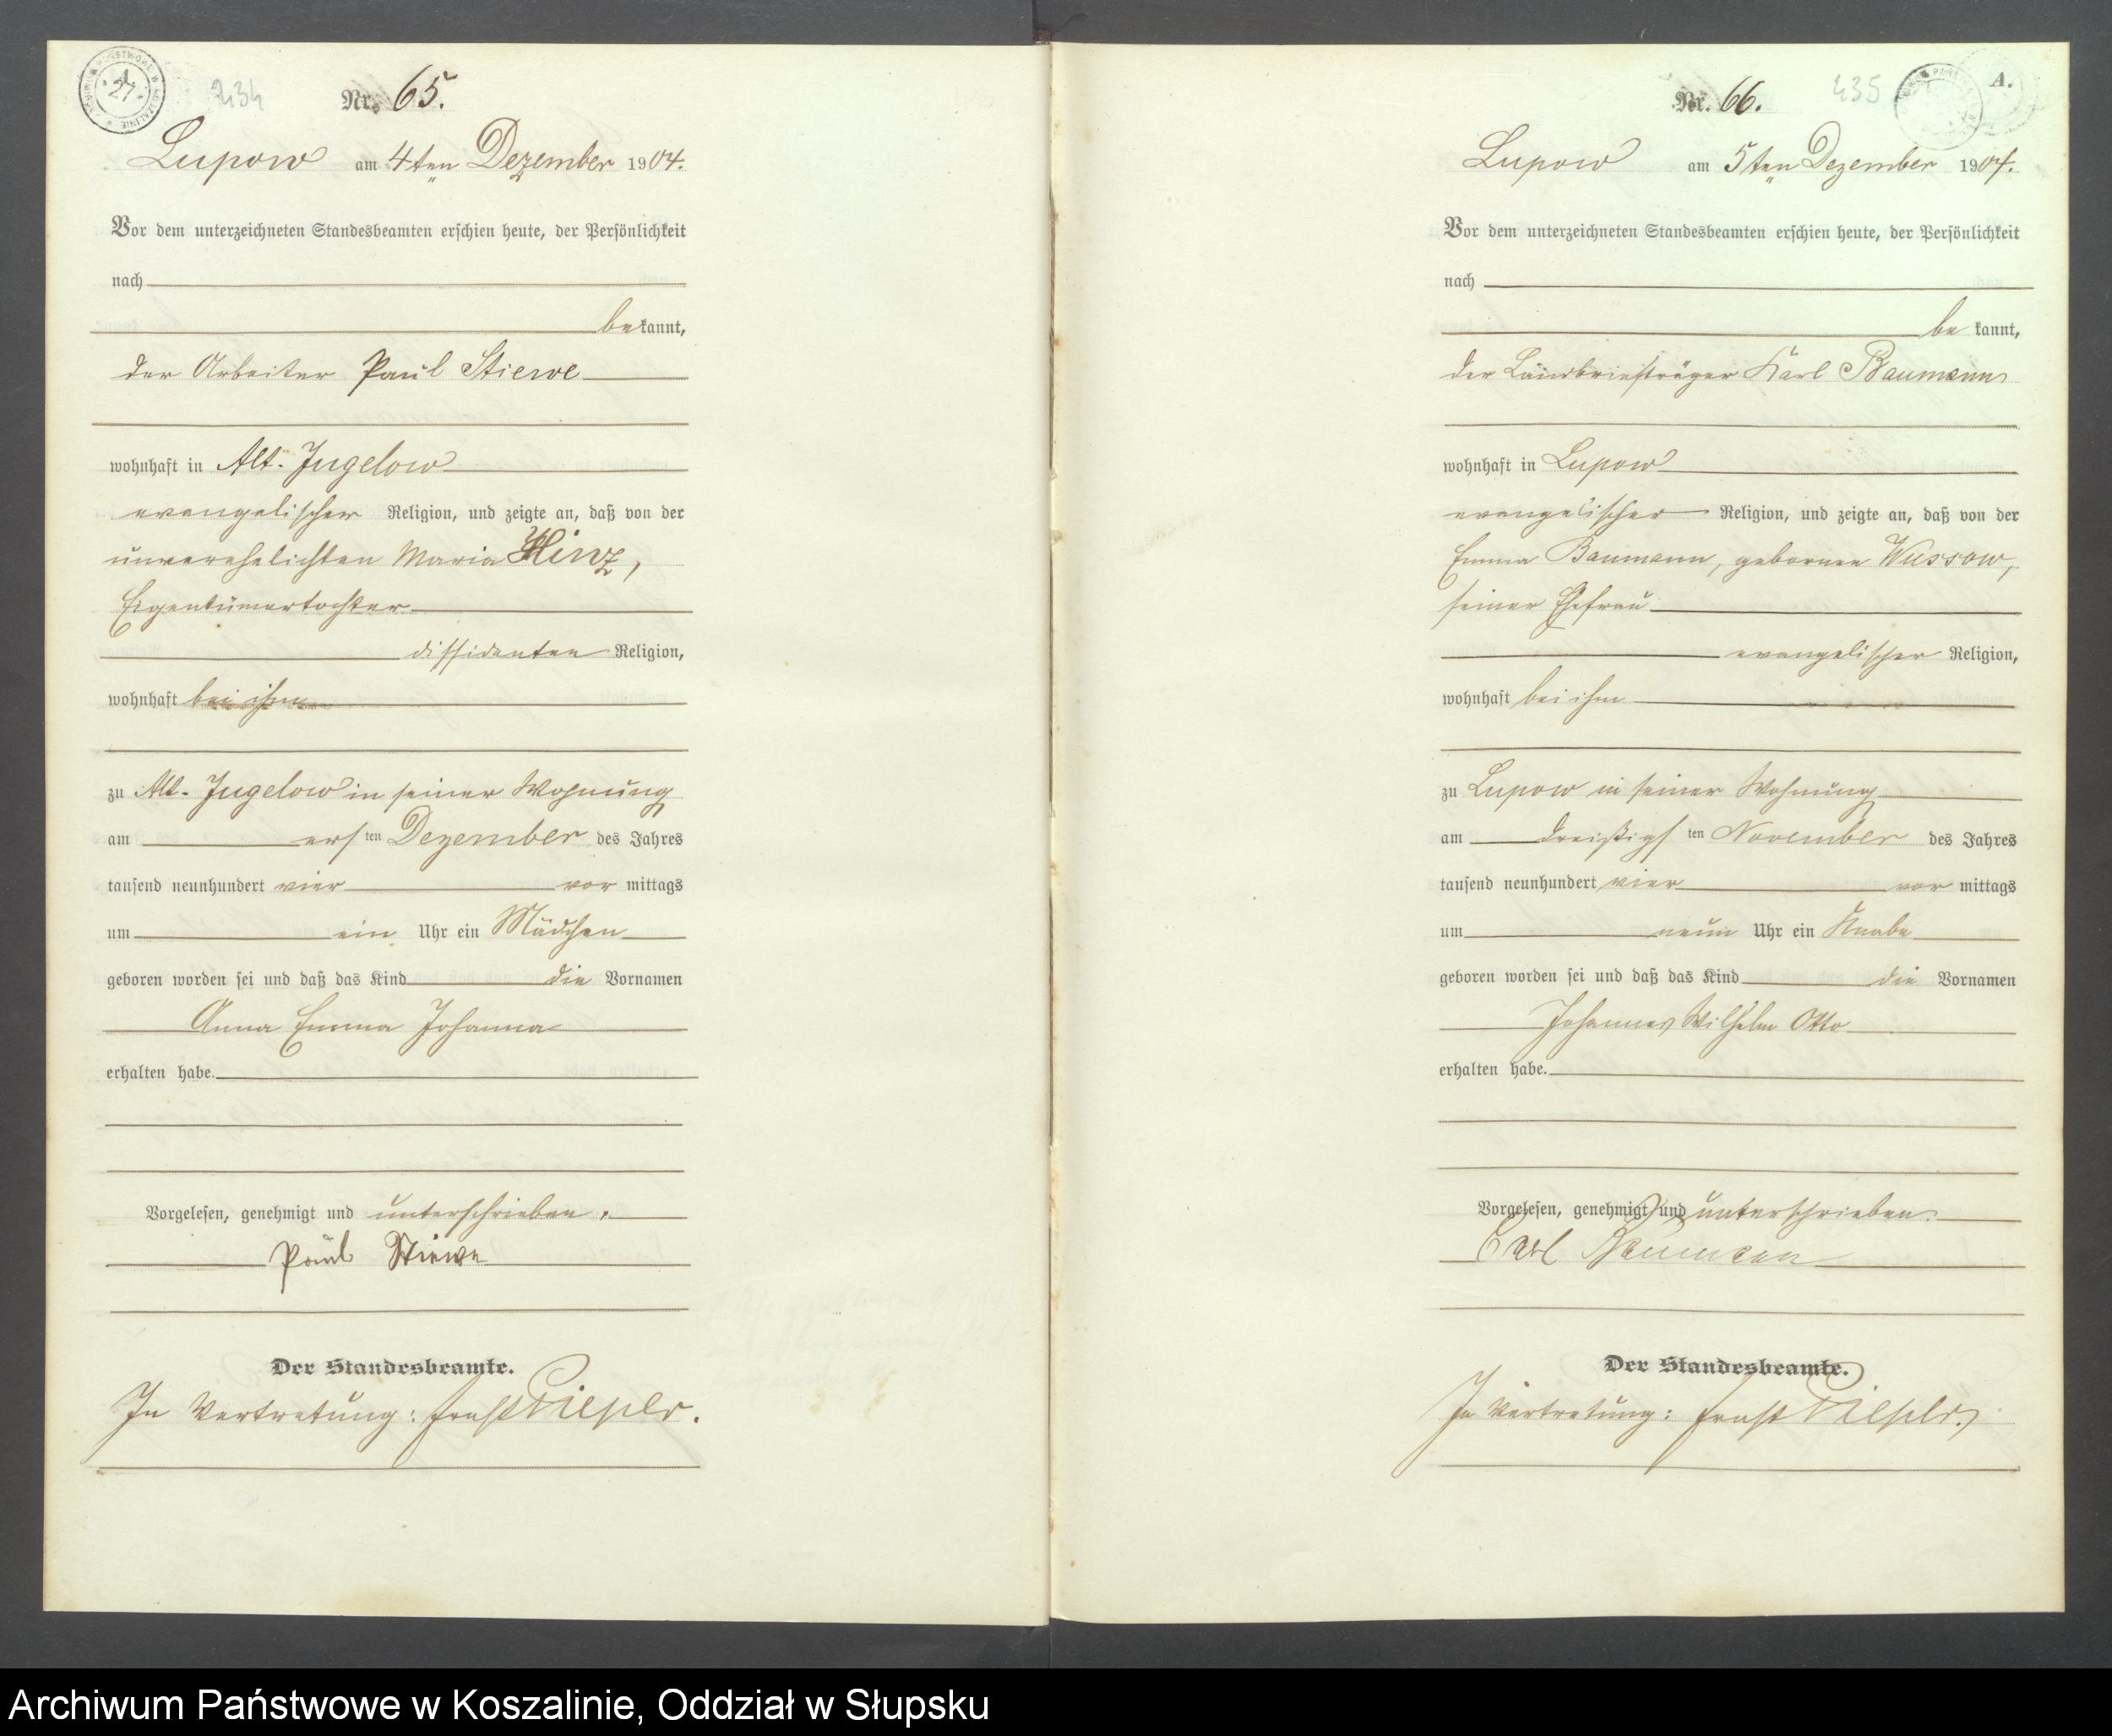 234
Nr. 65.
Lupow am 4ten Dezember 1904.
Vor dem unterzeichneten Standesbeamten erschien heute, der Persönlichkeit
nach
bekannt,
der Arbeiter Paul Stiewe
wohnhaft in Alt-Jugelow
evangelischer Religion, und zeigte an, daß von der
unverehelichten Maria Hinz,
Eigentümertochter
dissidenten Religion,
wohnhaft bei ihm
zu Alt-Jugelow in seiner Wohnung
am ersten Dezember des Jahres
tausend neunhundert vier vormittags
um ein Uhr ein Mädchen
geboren worden sei und daß das Kind die Vornamen
Anna Emma Johanna
erhalten habe.
Vorgelesen, genehmigt und unterschrieben.
Paul Stiewe
Der Standesbeamte.
In Vertretung: Ernst Piepler.
435
A.
Nr. 66.
Lupow am 5ten Dezember 1904.
Vor dem unterzeichneten Standesbeamten erschien heute, der Persönlichkeit
nach
bekannt,
der Landbriefträger Karl Baumann
wohnhaft in Lupow
evangelischer Religion, und zeigte an, daß von der
Emma Baumann, geborenen Wussow,
seiner Ehefrau
evangelischer Religion,
wohnhaft bei ihm
zu Lupow in seiner Wohnung
am dreißigsten November des Jahres
tausend neunhundert vier vormittags
um neun Uhr ein Knabe
geboren worden sei und daß das Kind die Vornamen
Johannes Wilhelm Otto
erhalten habe.
Vorgelesen, genehmigt und unterschrieben.
Carl Baumann
Der Standesbeamte.
In Vertretung: Ernst Piepler.
Archiwum Państwowe w Koszalinie, Oddział w Słupsku